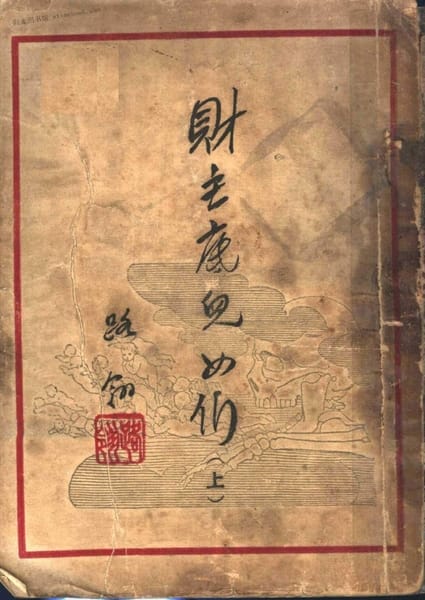 財主底兒女們
（上）
路翎